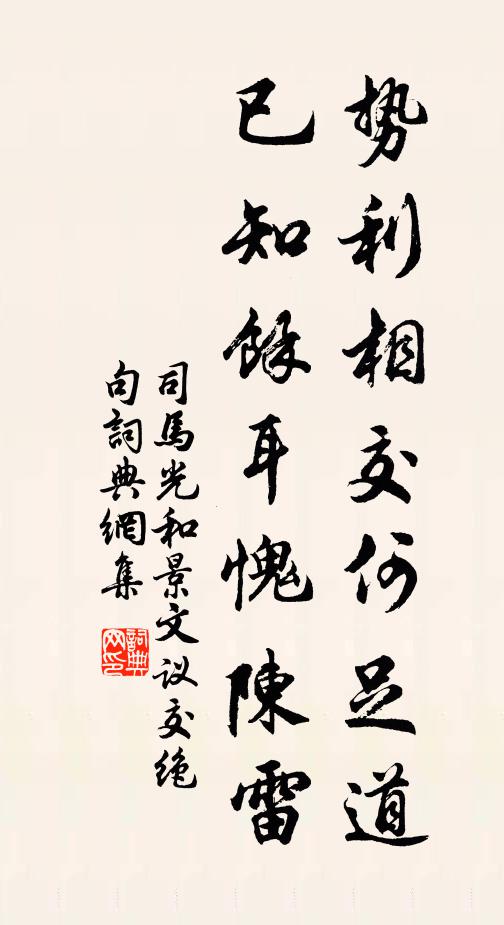 势利相交何足道
已知餘耳愧陳雷
司馬光和景文议交绝
句詞典網集
詞典网印